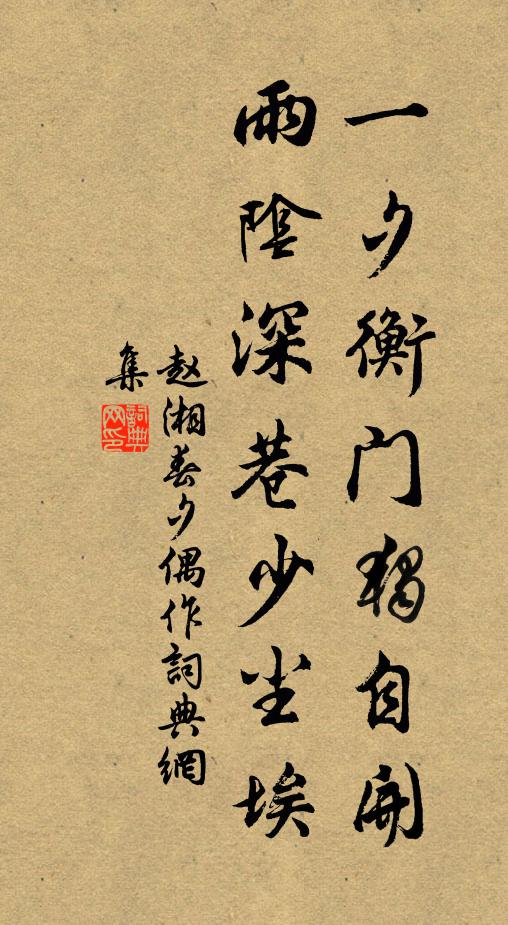 一夕衡门獨自開
雨陰深巷少尘埃
赵湘春夕偶作詞典網
集
詞典
网印